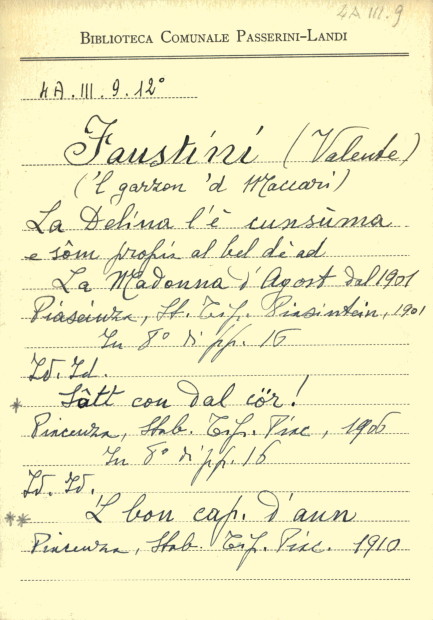 4A III.9
BIBLIOTECA COMUNALE PASSERINI-LANDI
4A.III.9.12°
Faustini (Valente)
('l garzon 'd Maccari)
La Delina l'è cunsüma
e sôm propi al bel dè ad
La Madonna d'Agost dal 1901
Piaseinza, St. Tip. Piasintein, 1901
In 8° di pp. 16
Id. Id.
* Fâtt con dal cör!
Piacenza, Stab. Tip. Piac, 1906
In 8° di pp. 16
Id. Id.
** 'L bon cap. d'ann
Piacenza, Stab. Tip. Piac. 1910